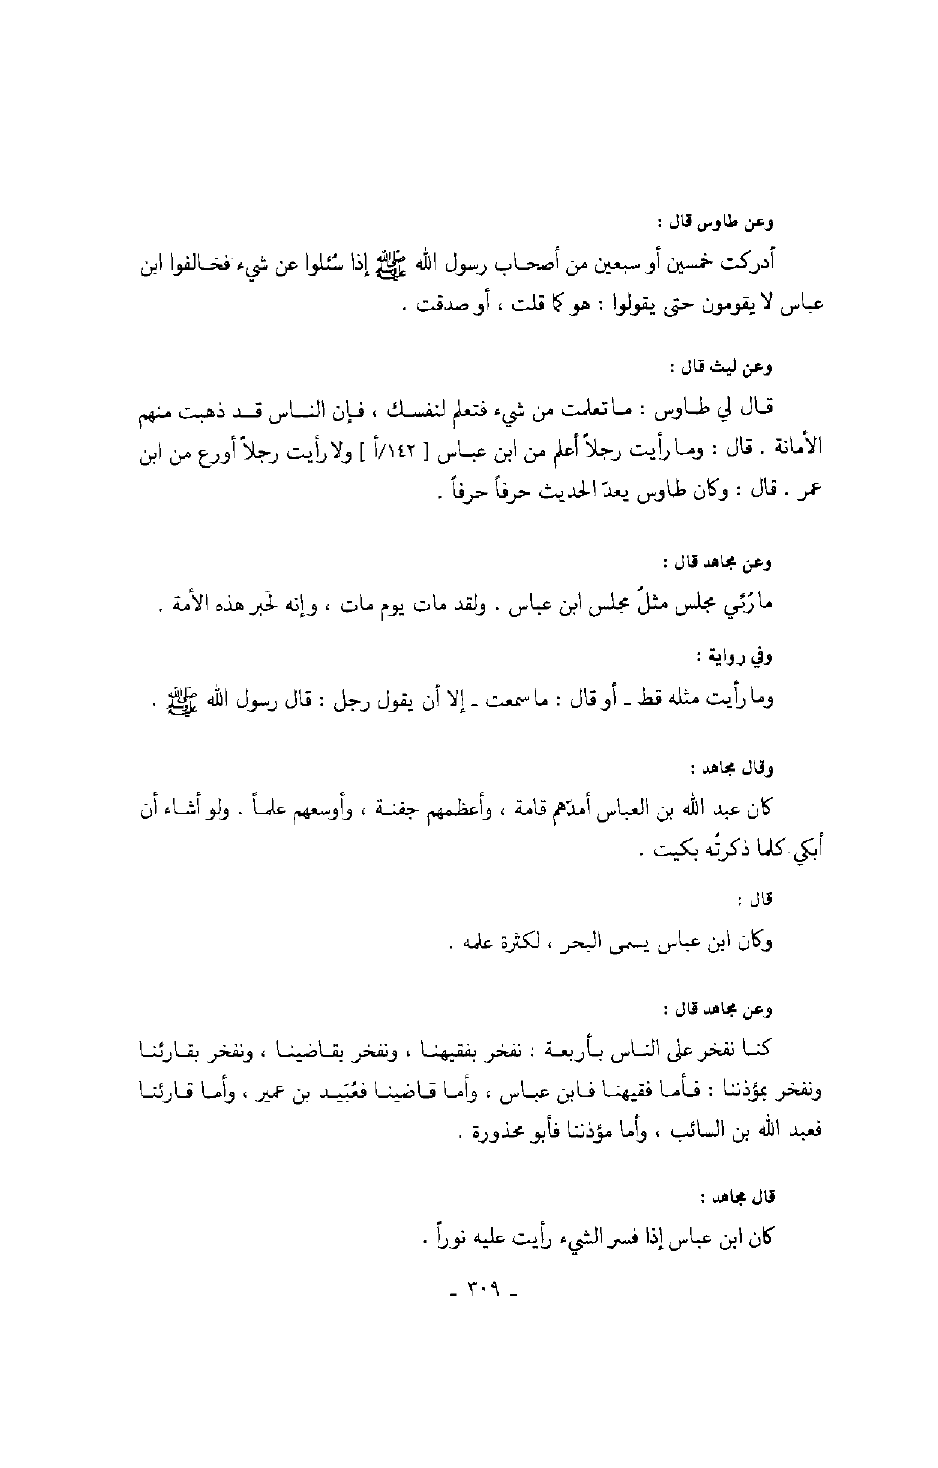 وعن طاوس قال :
أدركت خمسين أو سبعين من أصحاب رسول الله ﷺ إذا سُئلوا عن شيء فخالفوا ابن
عباس لا يقومون حتى يقولوا : هو كما قلت ، أو صدقت .
وعن ليث قال :
قال لي طاوس : ما تعلمت من شيء فتعلم لنفسك ، فإن الناس قد ذهبت منهم
الأمانة . قال : وما رأيت رجلاً أعلم من ابن عباس [ ١٤٢/أ ] ولا رأيت رجلاً أورع من ابن
عمر . قال : وكان طاوس يعدّ الحديث حرفاً حرفاً .
وعن مجاهد قال :
ما رُئي مجلس مثلُ مجلس ابن عباس . ولقد مات يوم مات ، وإنه لحبر هذه الأمة .
وفي رواية :
وما رأيت مثله قط ـ أو قال : ما سمعت ـ إلا أن يقول رجل : قال رسول الله ﷺ .
وقال مجاهد :
كان عبد الله بن العباس أمدّهم قامة ، وأعظمهم جفنة ، وأوسعهم علماً . ولو أشاء أن
أبكي كلما ذكرتُه بكيت .
قال :
وكان ابن عباس يسمى البحر ، لكثرة علمه .
وعن مجاهد قال :
كنا نفخر على الناس بأربعة : نفخر بفقيهنا ، ونفخر بقاضينا ، ونفخر بقارئنا
ونفخر بمؤذننا : فأما فقيهنا فابن عباس ، وأما قاضينا فعُبَيد بن عمير ، وأما قارئنا
فعبد الله بن السائب ، وأما مؤذننا فأبو محذورة .
قال مجاهد :
كان ابن عباس إذا فسر الشيء رأيت عليه نوراً .
ـ ٣٠٩ ـ